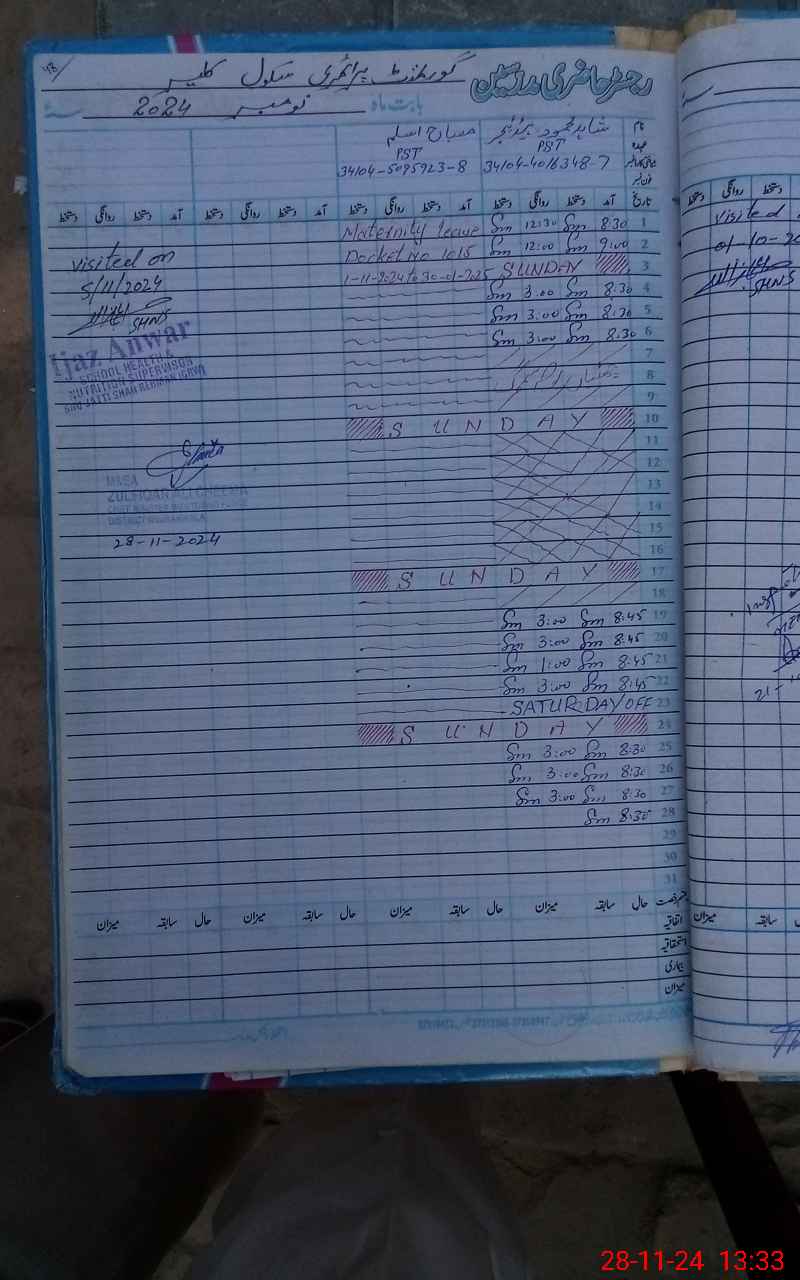 رجسٹر حاضری مدرسین گورنمنٹ پرائمری سکول کلیر
بابت ماہ نومبر 2024
نام شاہد محمود ہیڈ ٹیچر مصباح اسلم
عہدہ PST PST
34104-4016348-7 34104-5095923-8
تاریخ آمد دستخط روانگی دستخط آمد دستخط روانگی دستخط آمد دستخط روانگی دستخط آمد دستخط روانگی دستخط
1 8:30 Sm 12:30 Sm Maternity leave
2 9:00 Sm 12:00 Sm Docket No 1015
3 SUNDAY 1-11-2024 to 30-01-2025
4 8:30 Sm 3:00 Sm
5 8:30 Sm 3:00 Sm
6 8:30 Sm 3:00 Sm
7
8
9
10 SUNDAY
11
12
13
14
15
16
17 SUNDAY
18
19 8:45 Sm 3:00 Sm
20 8:45 Sm 3:00 Sm
21 8:45 Sm 1:00 Sm
22 8:45 Sm 3:00 Sm
23 SATURDAY OFF
24 SUNDAY
25 8:30 Sm 3:00 Sm
26 8:30 Sm 3:00 Sm
27 8:30 Sm 3:00 Sm
28 8:30 Sm
29
30
31
visited on
5/11/2024
SHNS
Ijaz Anwar
SCHOOL HEALTH &
NUTRITION SUPERVISOR
BHU JATTI SHAH REHMAN /GRWA
ZULFIQAR ALI CHEEMA
28-11-2024
حال سابقہ میزان حال سابقہ میزان حال سابقہ میزان حال سابقہ میزان
اتفاقیہ
استحقاقیہ
بیماری
میزان
visited
01-10-20
SHNS
دستخط روانگی دستخط
سابقہ میزان
28-11-24 13:33